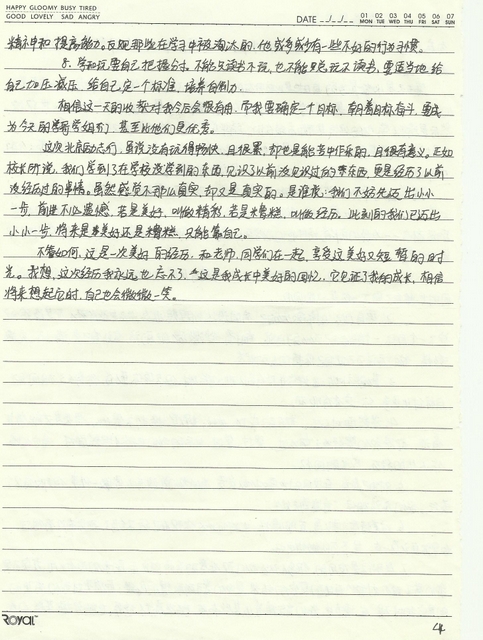 HAPPY GLOOMY BUSY TIRED
GOOD LOVELY SAD ANGRY
DATE __/__/__
01 02 03 04 05 06 07
MON TUE WED THU FRI SAT SUN
精神和提高能力。反观那些在学习中被淘汰的,他或多或少有一些不好的行为习惯。
8. 学和玩要自己把握合寸。不能只读书不玩,也不能只想玩不读书,要适当地给
自己加压减压,给自己定一个标准,培养自制力。
相信这一天的收获对我今后会很有用,带我要确定一个目标,朝着目标奋斗,要成
为今天的学哥学姐们,甚至比他们更优秀。
这次北京励志行,虽说没有玩得畅快,且很累,却也是能苦中作乐的,且很有意义。正如
校长所说,我们学到了在学校没学到的东西,见识了以前没见识过的东西,更是经历了以前
没经历过的事情。虽然感觉不那么真实,却又是真实的。是谁说:我们不妨先迈出小小
一步,前进不么遗憾,若是美好,叫做精彩,若是糟糕,叫做经历。此刻的我们已迈出
小小一步,将来是美好还是糟糕,只能靠自己。
不管如何,这是一次美好的经历,和老师、同学们在一起,享受这美好又短暂的时
光。我想,这次经历我永远也忘不了,这是我成长中美好的回忆,它见证了我的成长,相信
将来想起它时,自己也会微微一笑。
ROYAL
4